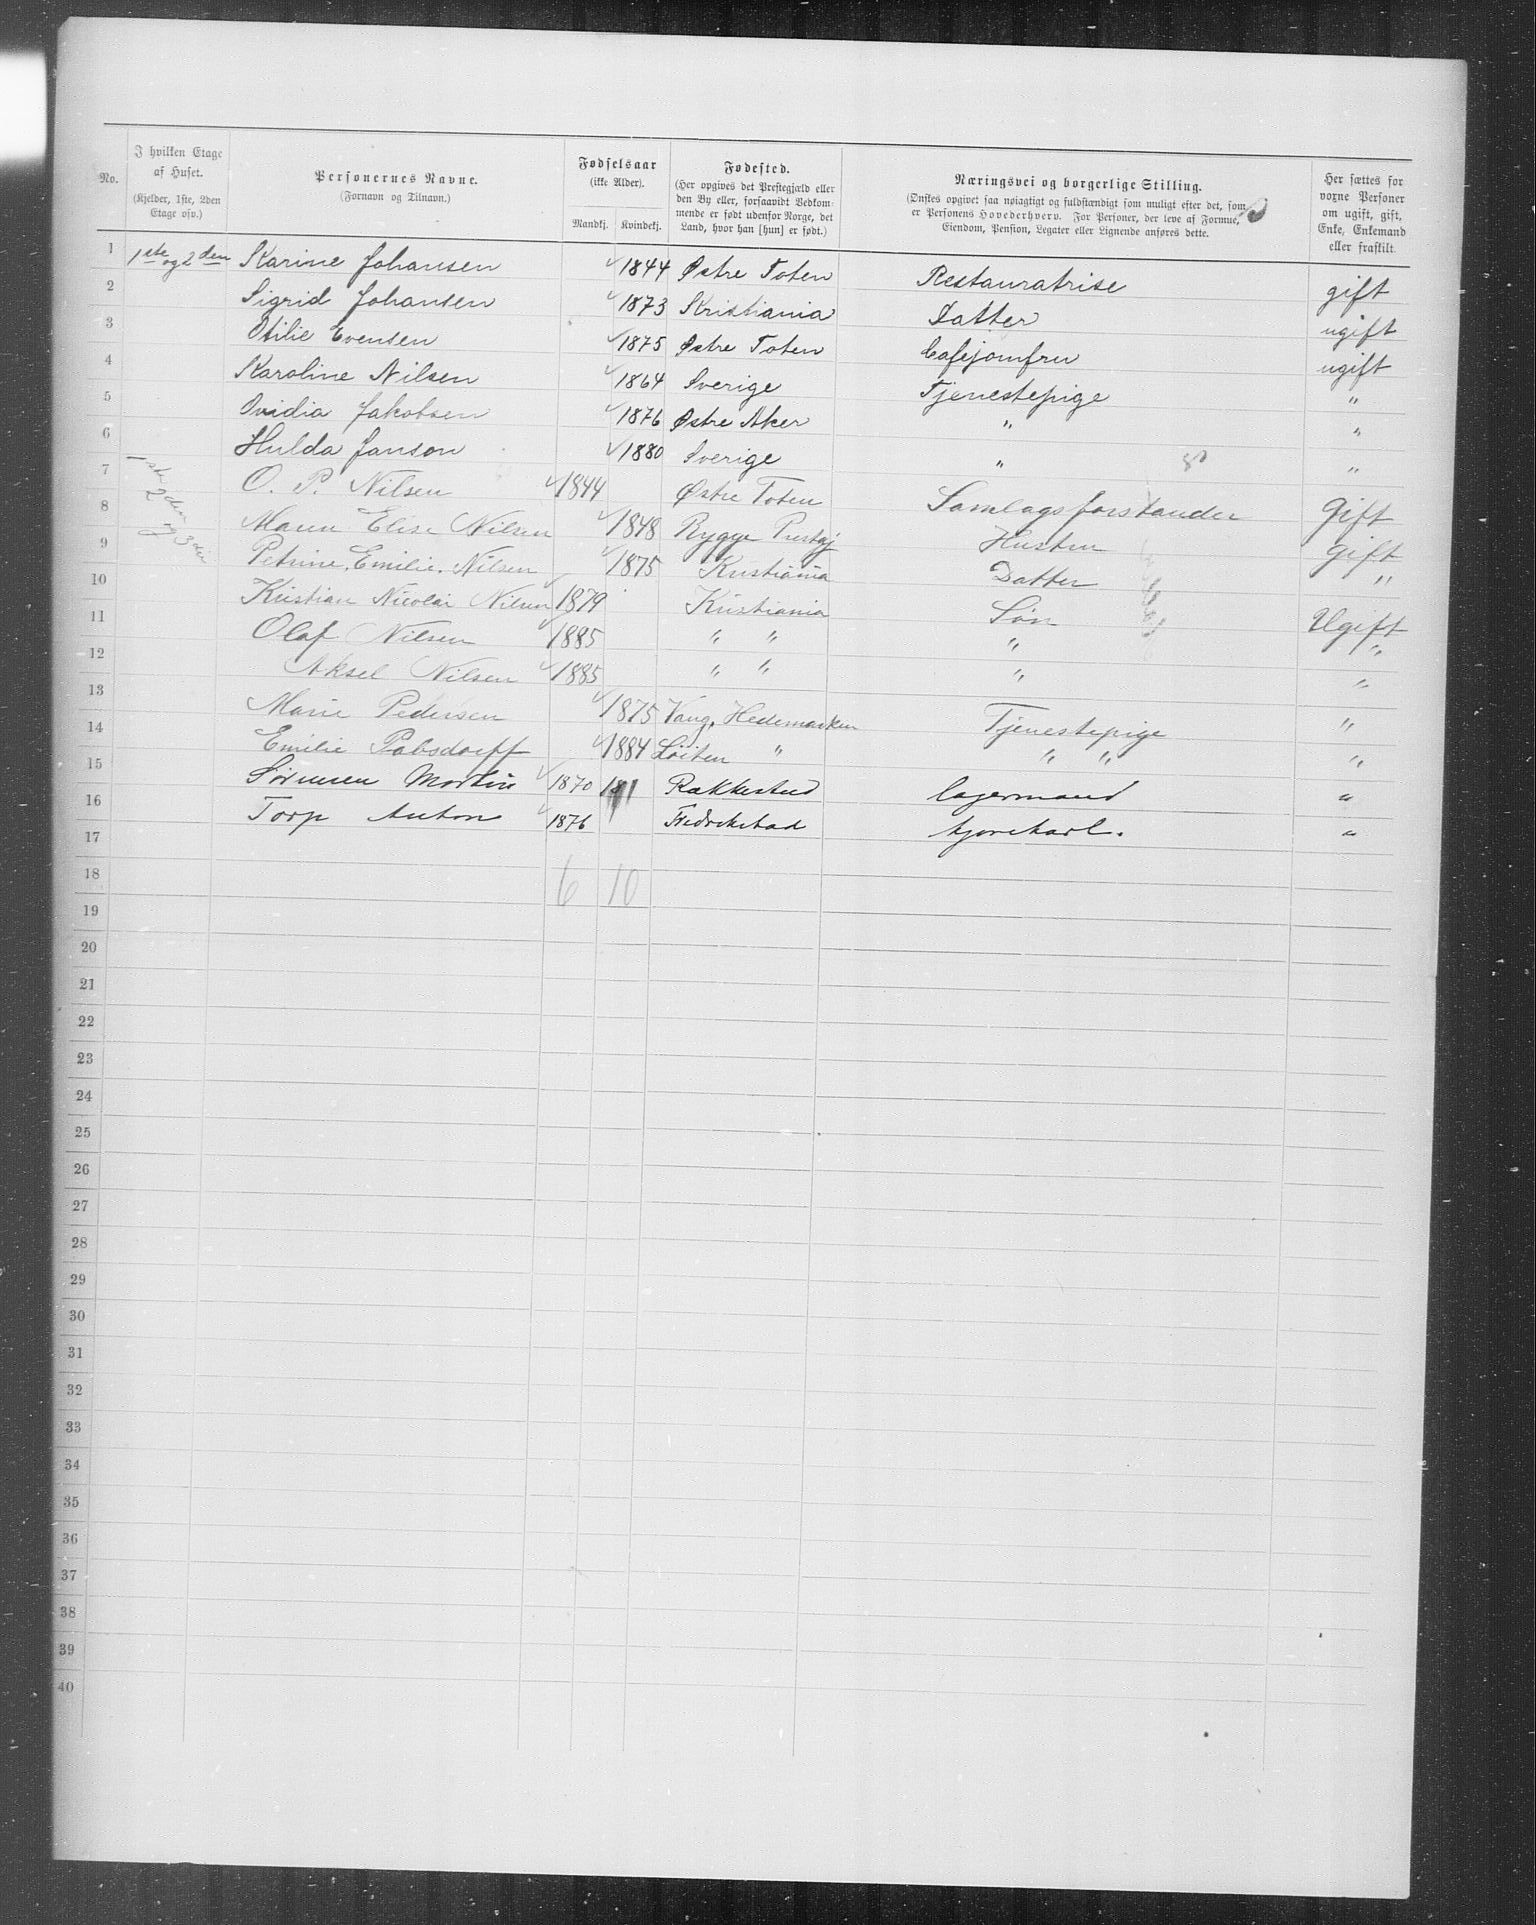 No. | I hvilken Etage af Huset. (Kjelder, 1ste, 2den Etage osv.) | Personernes Navne. (Fornavn og Tilnavn.) | Fødselsaar (ikke Alder). Mandkj. Kvindekj. | Fødested. (Her opgives det Præstegjæld eller den By eller, forsaavidt Vedkommende er født udenfor Norge, det Land, hvor han [hun] er født.) | Næringsvei og borgerlige Stilling. (Ønskes opgivet saa nøiagtigt og fuldstændigt som muligt efter det, som er Personens Hovederhverv. For Personer, der leve af Formue, Eiendom, Pension, Legater eller Lignende anføres dette. | Her sættes for voxne Personer om ugift, gift, Enke, Enkemand eller fraskilt.
1 1ste og 2den Karine Johansen 1844 Østre Toten Restauratrise gift
2 Sigrid Johansen 1873 Kristiania Datter ugift
3 Otilie Evensen 1875 Østre Toten Cafejomfru ugift
4 Karoline Nilsen 1864 Sverige Tjenestepige "
5 Ovidia Jakobsen 1876 Østre Aker " "
6 Hulda Janson 1880 Sverige " "
7 1ste 2den og 3die O. P. Nilsen 1844 Østre Toten Samlagsforstander Gift
8 Maren Elise Nilsen 1848 Rygge Prestgj Hustru gift
9 Petrine, Emilie, Nilsen 1875 Kristiania Datter "
10 Kristian Nicolai Nilsen 1879 Kristiania Søn Ugift
11 Olaf Nilsen 1885 " " " "
12 Aksel Nilsen 1885 " " " "
13 Marie Pedersen 1875 Vang, Hedemarken Tjenestepige "
14 Emilie Pabsdorff 1884 Löiten " " " "
15 Sörensen Martin 1870 Rakkestad lagermand "
16 Torp Anton 1876 Fredrikstad kjørekarl. "
17
18 6 10
19
20
21
22
23
24
25
26
27
28
29
30
31
32
33
34
35
36
37
38
39
40